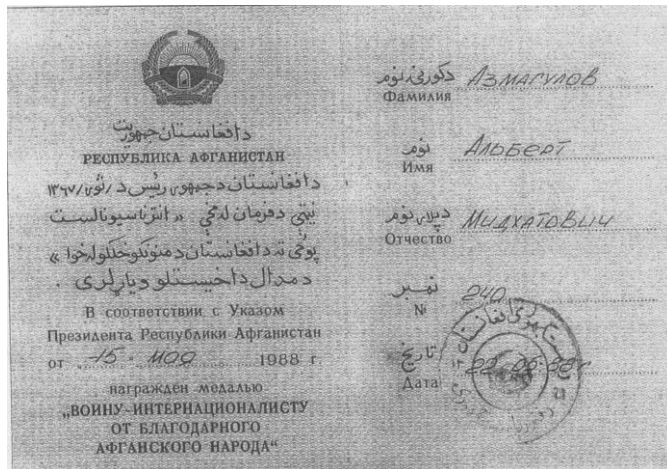 دافغانستان جمهوریت
РЕСПУБЛИКА АФГАНИСТАН
دافغانستان دجمهور رئیس د /ثور/ ۱۳۶۷
نیټې دفرمان له مخې « انترناسیونالست
پوځي ته دافغانستان د منونکو خلکو له خوا »
د مدال د اخیستلو ویاړ لري .
В соответствии с Указом
Президента Республики Афганистан
от 15 мая 1988 г.
награжден медалью
„ВОИНУ-ИНТЕРНАЦИОНАЛИСТУ
ОТ БЛАГОДАРНОГО
АФГАНСКОГО НАРОДА“
دکورنی نوم Азмагулов
Фамилия
نوم Альберт
Имя
دپلار نوم Мидхатович
Отчество
نمبر 240
№
تاریخ
Дата